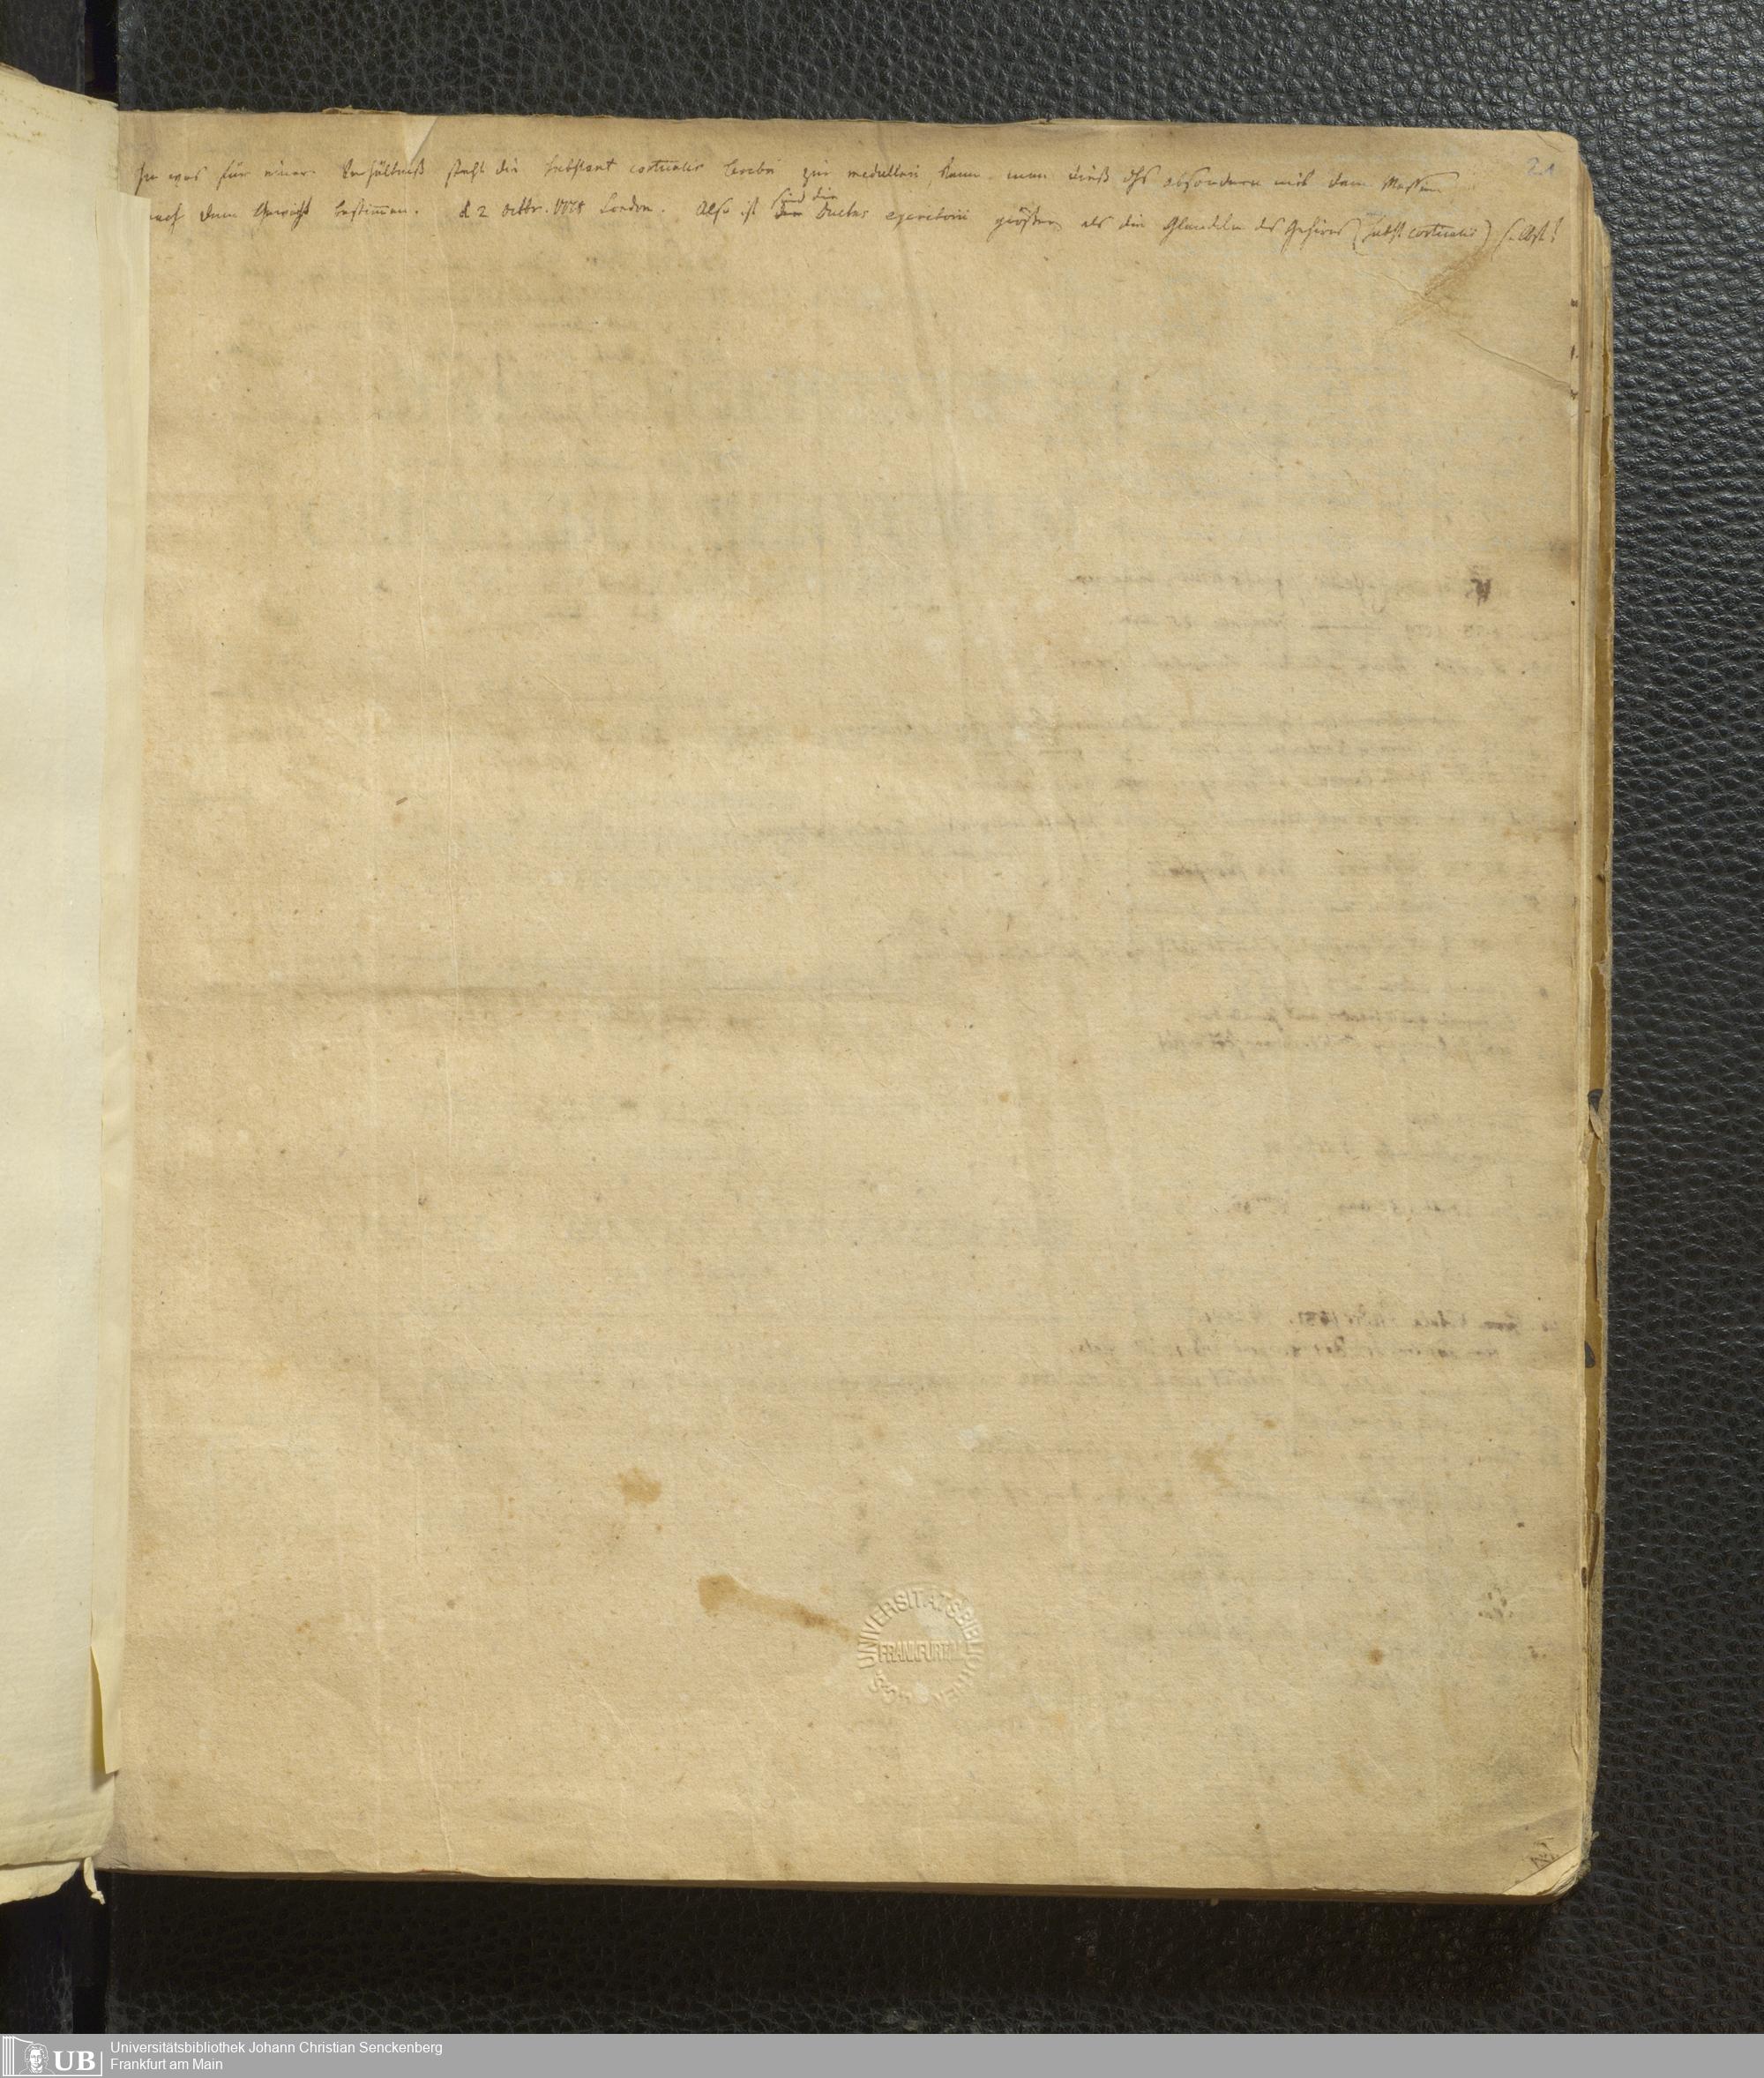 In was für einer Verhältniß steht die Substant corticalis Cerebri zur medullari, kann man dieß absondern mit dem Messer 21
nach dem Gewicht bestimmen. d 2 Octbr. London. Also ist
sind die
die Ductus excretorii größer als die Glandeln des Gehirns (Subst corticalis) selbst!
UNIVERSITÄTSBIBLIOTHEK
FRANKFURT/M.
UB
Universitätsbibliothek Johann Christian Senckenberg
Frankfurt am Main